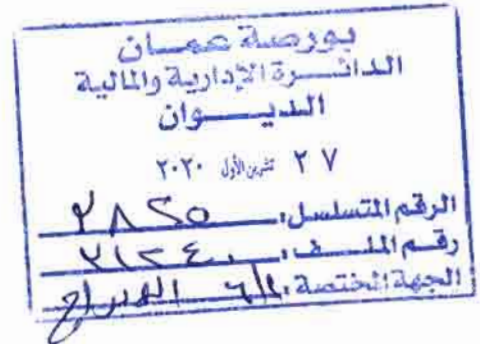 بورصة عمان
الدائرة الإدارية والمالية
الديوان
٢٧ تشرين الأول ٢٠٢٠
الرقم المتسلسل: ٢٨٢٥
رقم الملف: ٢١٢٤٠
الجهة المختصة: الادراج